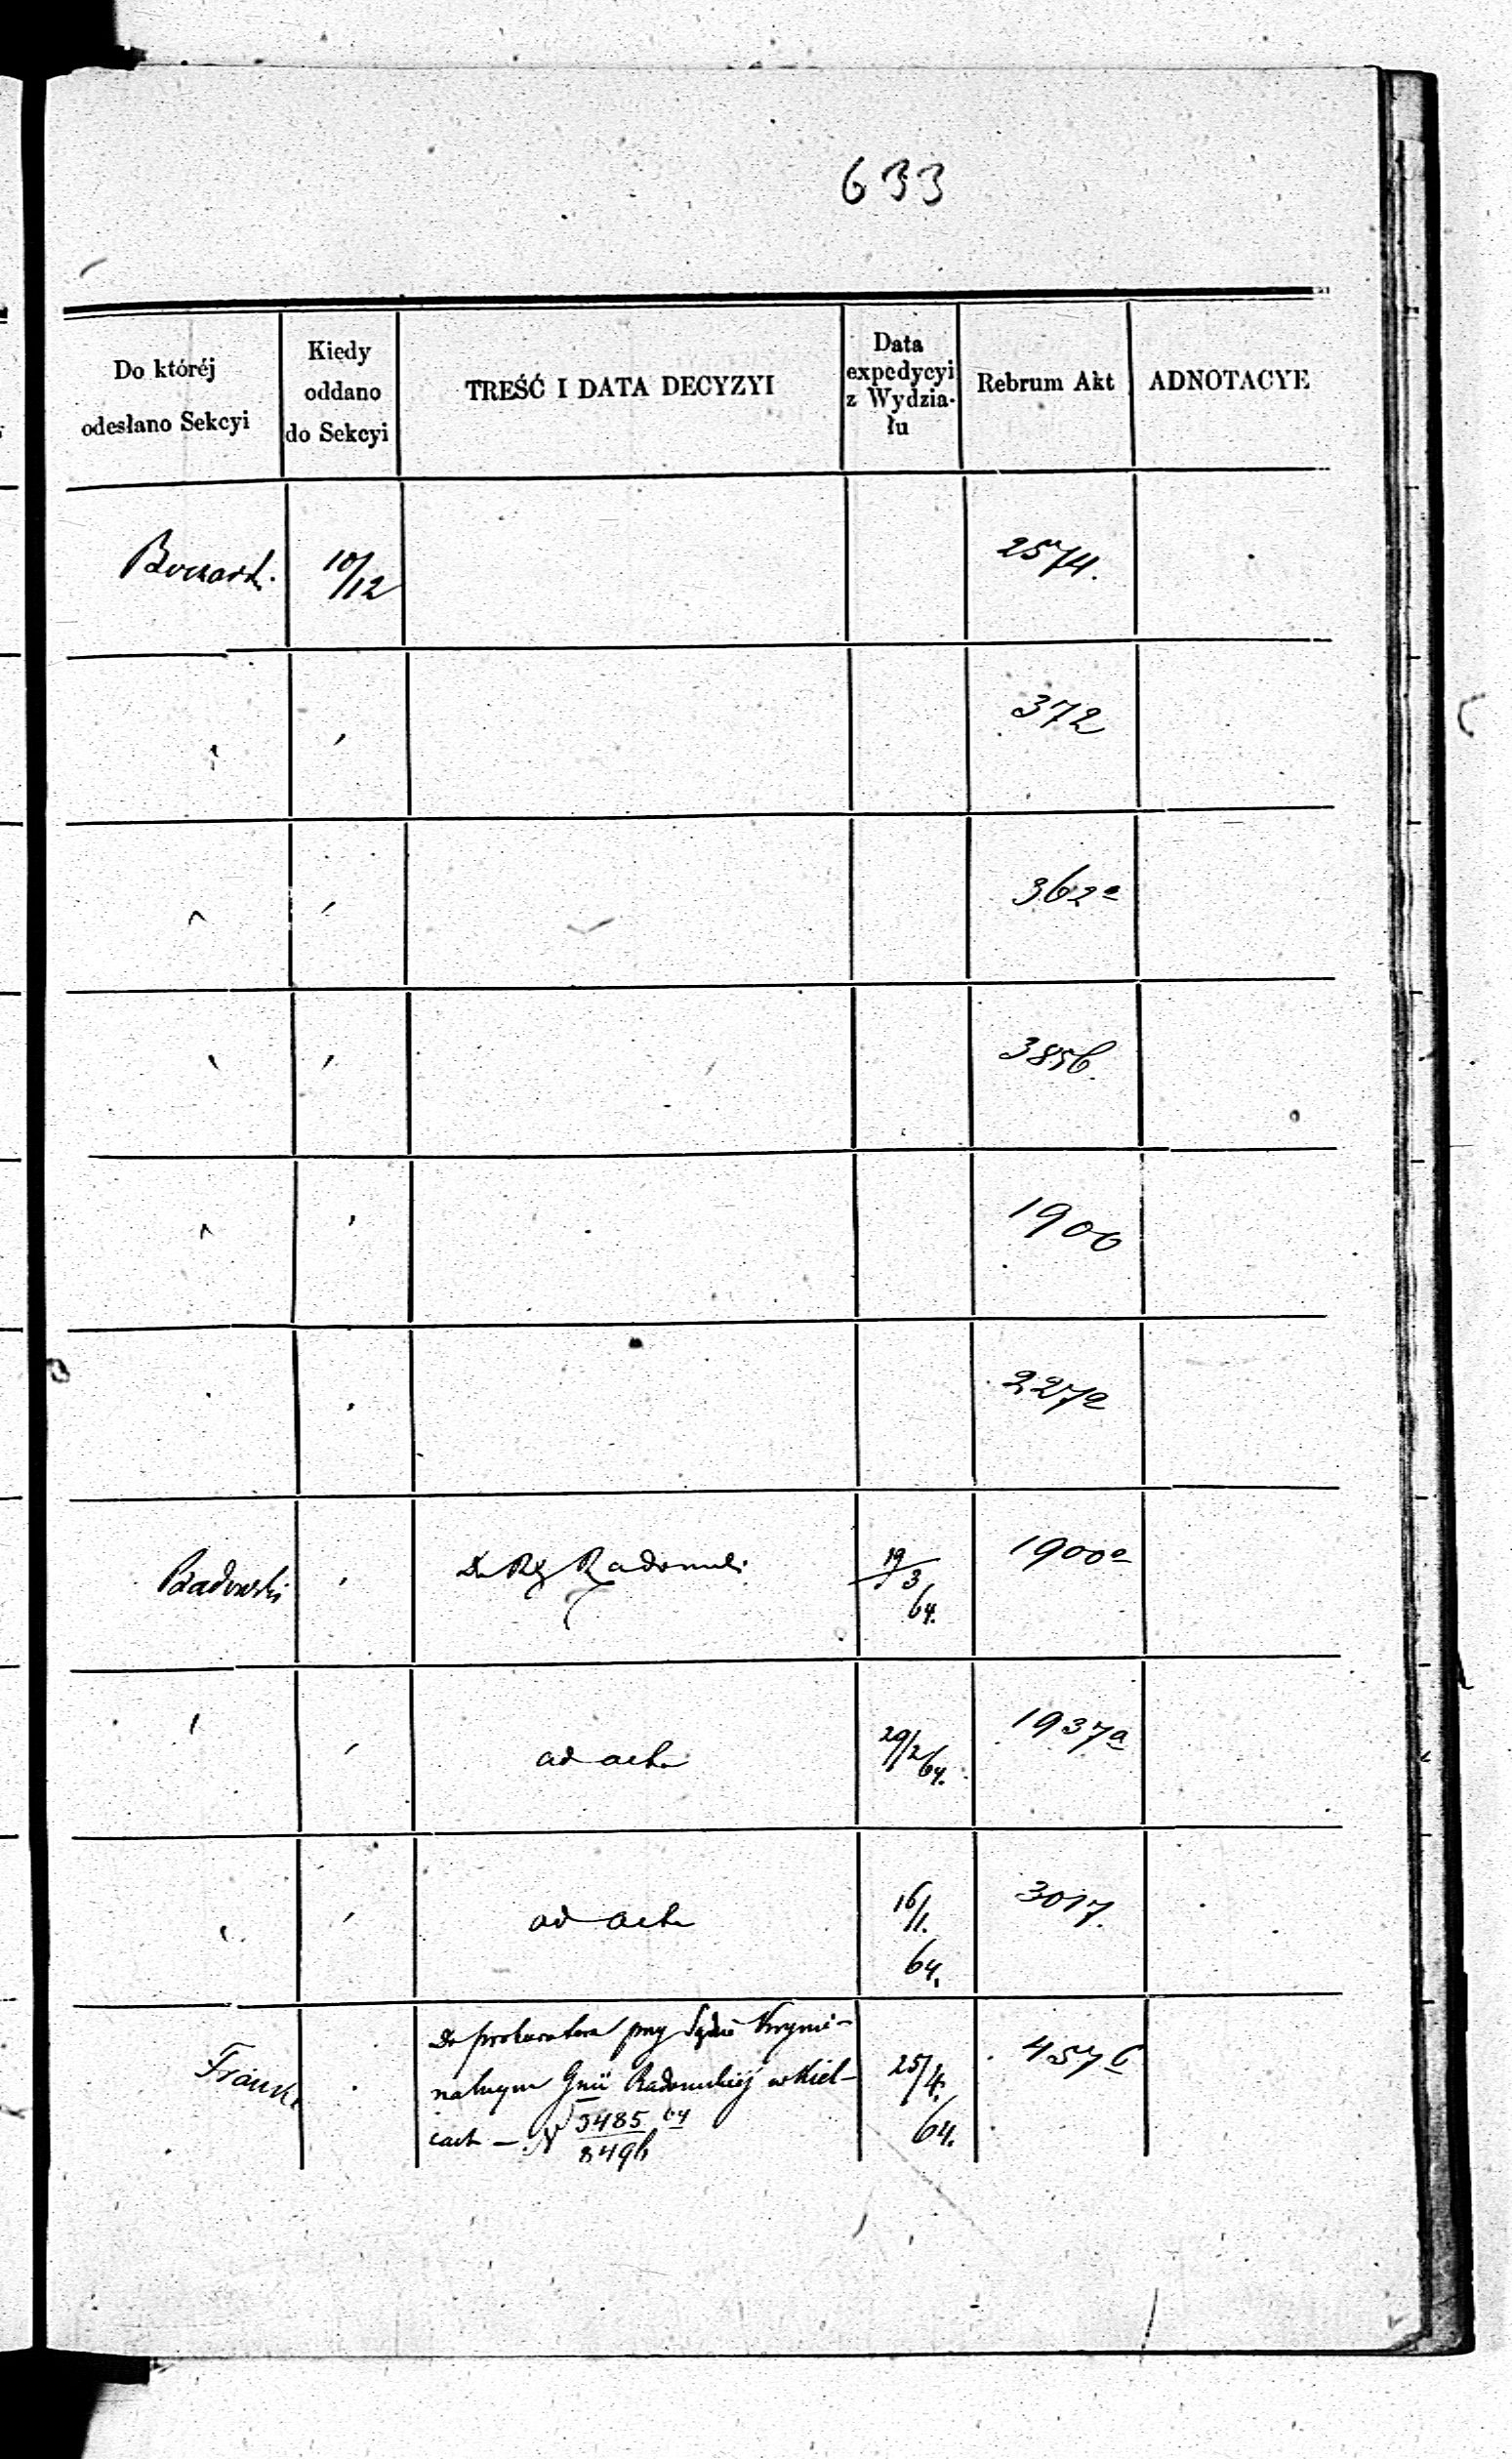 633
Do któréj odesłano Sekcyi
Kiedy oddano do Sekcyi
TREŚĆ I DATA DECYZYI
Data expedycyi z Wydzia-łu
Rebrum Akt
ADNOTACYE
10/12 2574.
372
362a
385b
1900
2272
Badowski Do RG Radomski 19/3 64. 1900a
ad acta 29/2 64. 1937a
ad acta 16/1. 64. 3017.
Do prokuratora przy Sądzie Krymi-
nalnym Gnii Radomskiej w Kiel-
cach — N 3485/8496 64
25/4. 64. 457b